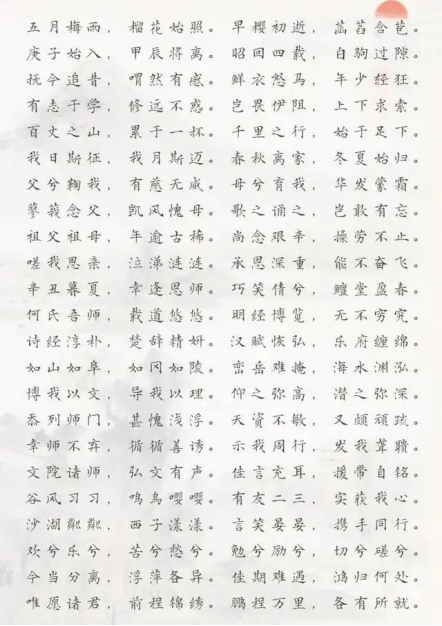 五月梅雨，榴花始照。早樱初逝，菡萏含苞。
庚子始入，甲辰将离。昭回四载，白驹过隙。
抚今追昔，喟然有感。鲜衣怒马，年少轻狂。
有志于学，修远不惑。岂畏伊阻，上下求索。
百丈之山，累于一抔。千里之行，始于足下。
我日斯征，我月斯迈。春秋离家，冬夏始归。
父兮鞠我，有慈无威。母兮育我，华发蒙霜。
蓼莪念父，凯风愧母。歌之诵之，岂敢有忘。
祖父祖母，年逾古稀。尚念艰辛，操劳不止。
嗟我思亲，泣涕涟涟。承恩深重，能不奋飞。
辛丑暮夏，幸逢恩师。巧笑倩兮，鳣堂盈春。
何氏吾师，载道悠悠。明经博览，无不穷究。
诗经淳朴，楚辞精妍。汉赋恢弘，乐府缠绵。
如山如阜，如冈如陵。峦岳难掩，海水渊泓。
博我以文，导我以理。仰之弥高，潜之弥深。
忝列师门，甚愧浅浮。天资不敏，又颇顽孩。
幸师不弃，循循善诱。示我周行，发我葺聩。
文院诸师，弘文有声。佳言充耳，援带自铭。
谷风习习，鸣鸟嘤嘤。有友二三，实获我心。
沙湖粼粼，西子漾漾。言笑晏晏，携手同行。
欢兮乐兮，苦兮愁兮。勉兮励兮，切兮磋兮。
今当分离，浮萍各异。佳期难遇，鸿归何处。
唯愿诸君，前程锦绣。鹏程万里，各有所就。